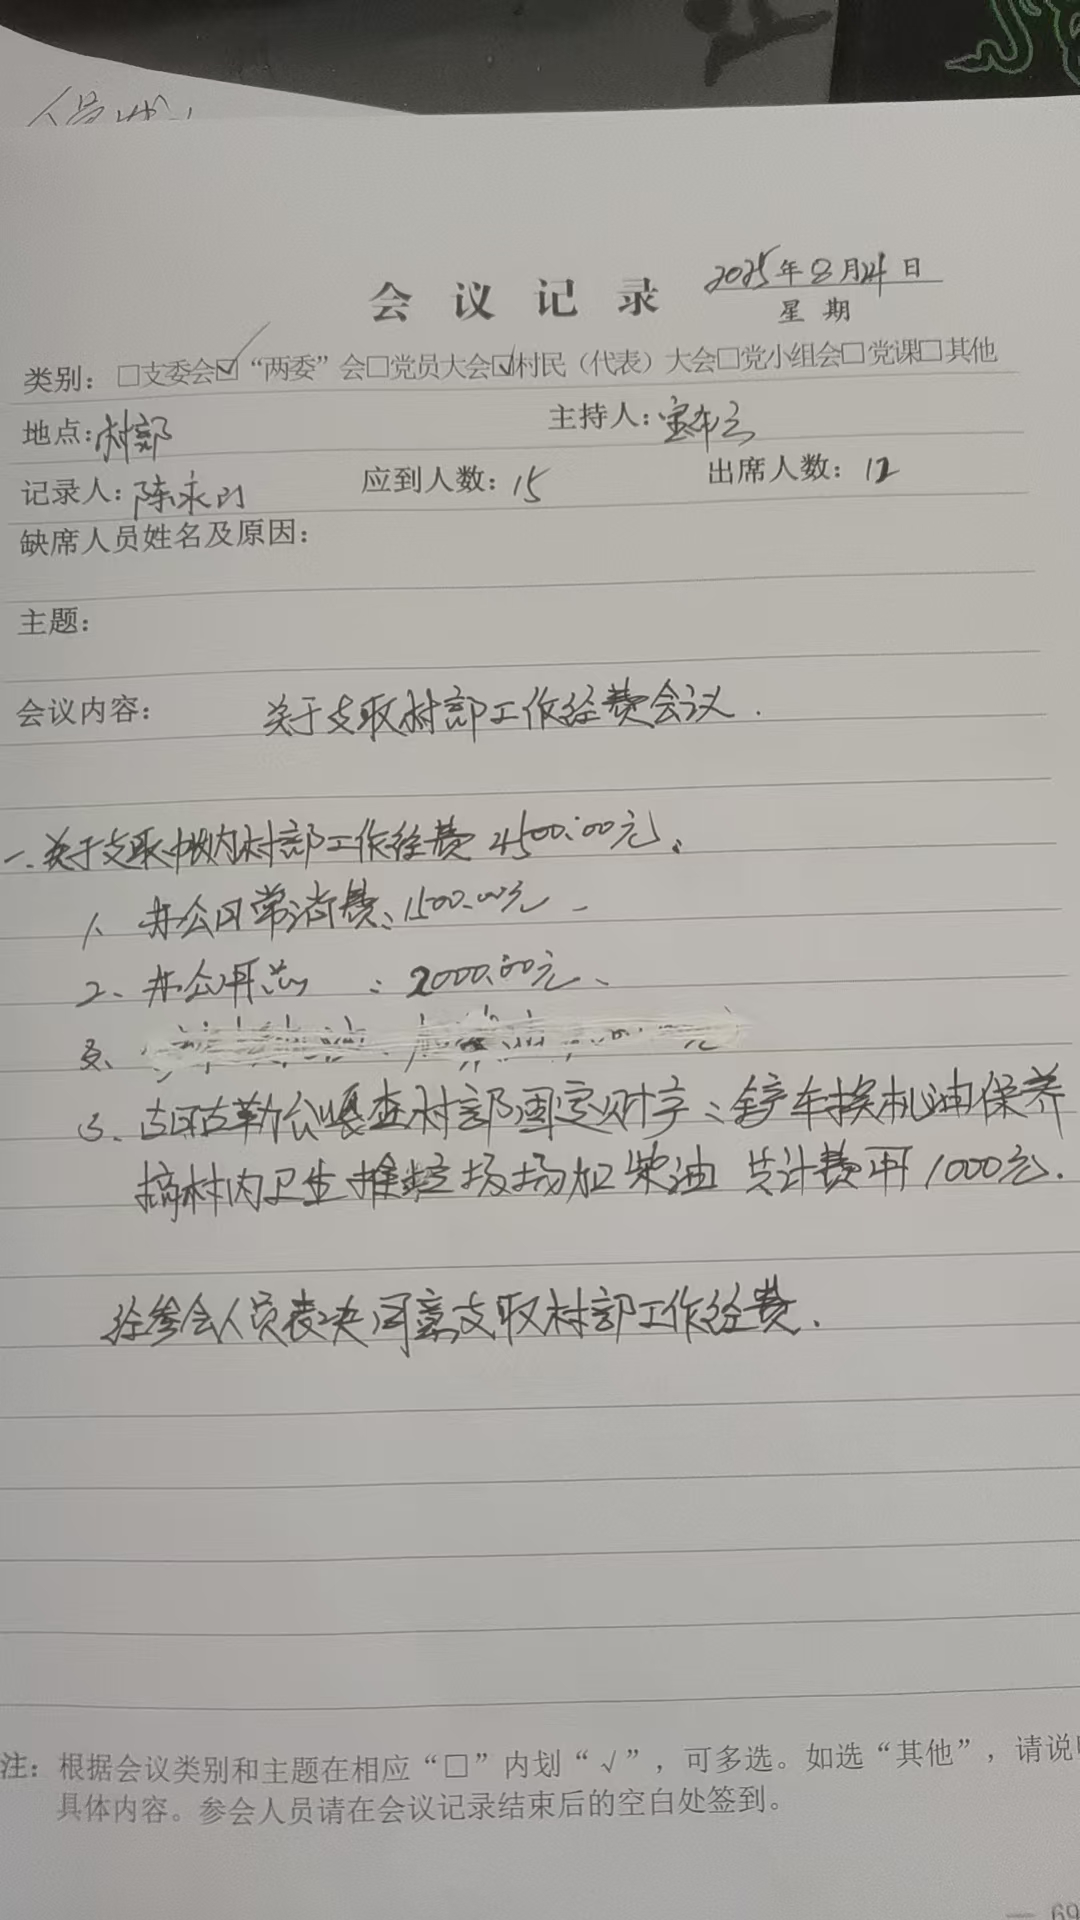 人员
会议记录 2025年8月24日
星期
类别：□支委会☑“两委”会□党员大会☑村民（代表）大会□党小组会□党课□其他
地点：村部 主持人：
记录人：陈永 应到人数：15 出席人数：12
缺席人员姓名及原因：
主题：
会议内容： 关于支取村部工作经费会议.
一.关于支取 村部工作经费4500.00元.
1、办公日常消费：1500.00元
2、办公开 ：2000.00元、
3、
3、 村部固定财产：铲车换机油保养
搞村内卫生推垃圾场加柴油 共计费用1000元.
经参会人员表决同意支取村部工作经费.
注：根据会议类别和主题在相应“□”内划“√”，可多选。如选“其他”，请说
具体内容。参会人员请在会议记录结束后的空白处签到。
— 69